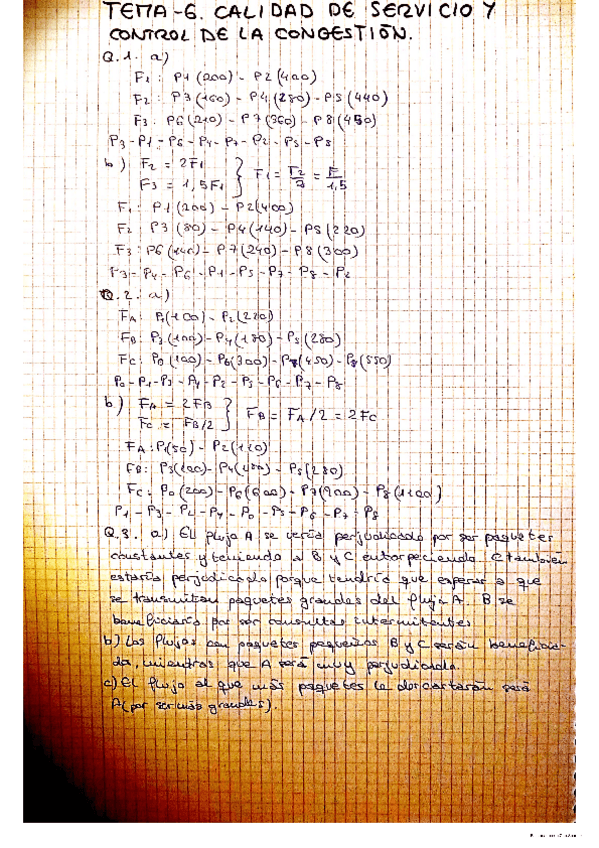 TEMA-6. CALIDAD DE SERVICIO Y
CONTROL DE LA CONGESTIÓN.
Q.1. a)
F1: P1(200) - P2(400)
F2: P3(160) - P4(280) - P5(440)
F3: P6(210) - P7(360) - P8(450)
P3-P1-P6-P4-P7-P2-P5-P8
b) F2 = 2F1
F3 = 1,5F1 } F1 = F2/2 = F/1,5
F1: P1(200) - P2(400)
F2: P3(80) - P4(140) - P5(220)
F3: P6(140) - P7(240) - P8(300)
P3-P4-P6-P1-P5-P7-P8-P2
Q.2. a)
FA: P1(100) - P2(220)
FB: P3(100) - P4(180) - P5(280)
FC: P0(100) - P6(300) - P7(450) - P8(550)
P0-P1-P3-P4-P2-P5-P6-P7-P8
b) FA = 2FB
FC = FB/2 } FB = FA/2 = 2FC
FA: P1(50) - P2(110)
FB: P3(100) - P4(180) - P5(280)
FC: P0(200) - P6(600) - P7(900) - P8(1100)
P1-P3-P2-P4-P0-P5-P6-P7-P8
Q.3. a) El flujo A se vería perjudicado por ser paquetes
constantes y teniendo a B y C entorpeciendo. C también
estaría perjudicado porque tendría que esperar a que
se transmitan paquetes grandes del flujo A. B se
beneficiaría por ser consultas intermitentes
b) Los flujos con paquetes pequeños B y C serán beneficia-
da, mientras que A será muy perjudicada.
c) El flujo al que más paquetes le descartarán será
A (por ser más grandes).